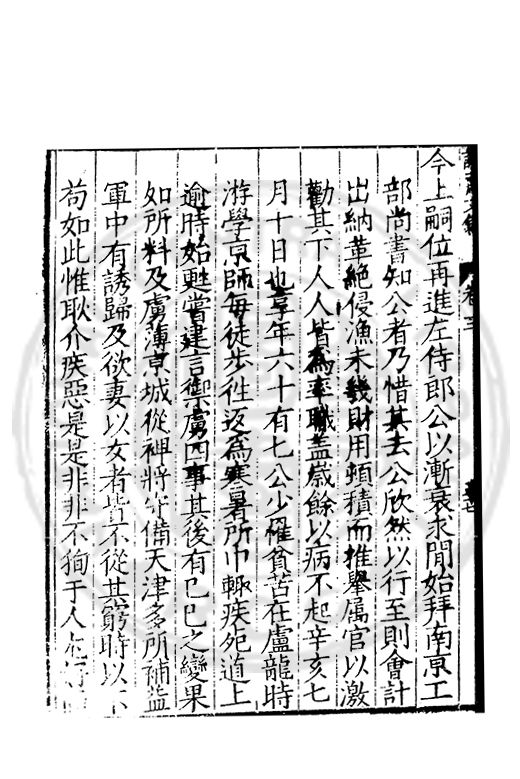 今上嗣位再進左侍郎公以漸衰求閒始拜南京工
部尚書知公者乃惜其去公欣然以行至則會計
出納革絶侵漁未幾財用頓積而推舉属官以激
勸其下人人皆為率職蓋歲餘以病不起辛亥七
月十日也享年六十有七公少罹貧苦在盧龍時
游學京師每徒步徃返為寒暑所中輙疾死道上
逾時始甦嘗建言禦虜四事其後有己巳之變果
如所料及虜薄京城從裨將守備天津多所補益
軍中有誘歸及欲妻以女者皆不從其窮時以
苟如此惟耿介疾惡是是非非不狥于人